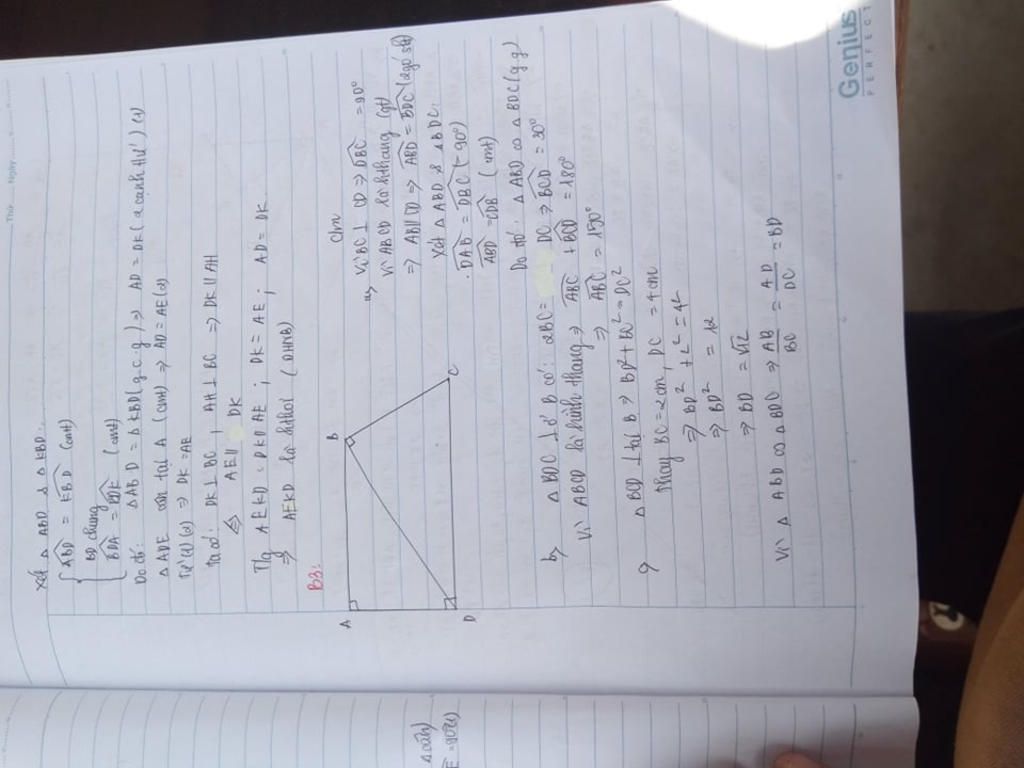 Thứ Ngày
Xét △ ABD & △ KBD:
{ ABD = KBD (cmt)
BD chung
BDA = BDK (cmt)
Do đó: △ABD = △KBD (g.c.g) ⇒ AD = DK (2 cạnh tứ) (1)
△ ADE cân tại A (cmt) ⇒ AD = AE (2)
Từ (1) (2) ⇒ DK = AE
Ta có: DK ⊥ BC, AH ⊥ BC ⇒ DK // AH
⇔ AE // DK
Tg AEKD: DK // AE; DK = AE; AD = DK
⇒ AEKD là hthoi (DHNB)
B3:
A B C D
Cm
a, Vì BC ⊥ BD ⇒ DBC = 90°
Vì ABCD là hthang (gt)
⇒ AB // CD ⇒ ABD = BDC (2góc slt)
Xét △ ABD & △ BDC:
DAB = DBC (= 90°)
ABD = CDB (cmt)
Do đó: △ ABD ∽ △ BDC (g.g)
b, △ BDC ⊥ ở B có: 2BC = DC ⇒ BCD = 30°
Vì ABCD là hình thang ⇒ ABC + BCD = 180°
⇒ ABC = 150°
c, △ BCD ⊥ tại B ⇒ BD² + BC² = DC²
Thay BC = 2cm, DC = 4cm
⇒ BD² + 2² = 4²
⇒ BD² = 12
⇒ BD = √12
Vì △ ABD ∽ △ BDC ⇒ AB/BD = AD/DC = BD
Genius
PERFECT
△ cân)
= 90°)